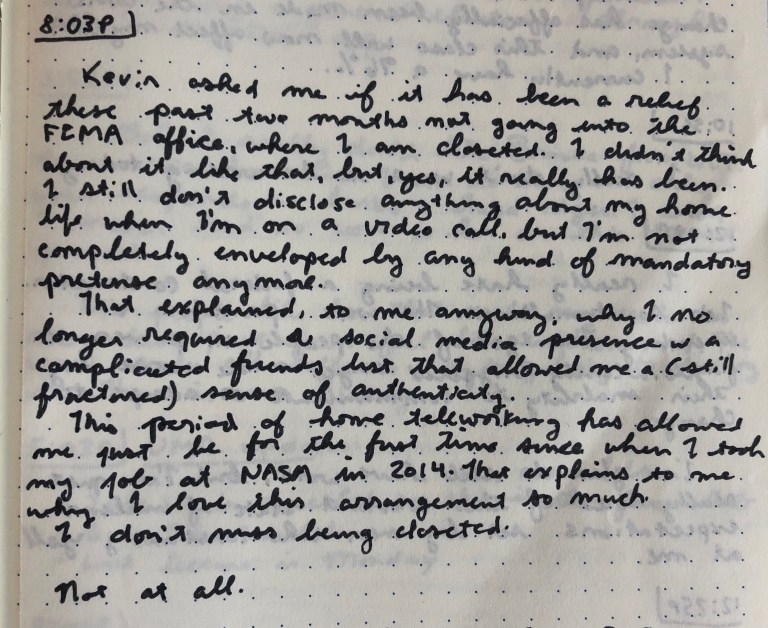 8:03P.
Kevin asked me if it has been a relief
these past two months not going into the
FEMA office, where I am closeted. I didn't think
about it like that, but, yes, it really has been.
I still don't disclose anything about my home
life when I'm on a video call, but I'm not
completely enveloped by any kind of mandatory
pretense anymore.
That explained, to me anyway, why I no
longer required a social media presence w a
complicated friends list that allowed me a (still
fractured) sense of authenticity.
This period of home teleworking has allowed
me just be for the first time since when I took
my job at NASA in 2014. That explains to me
why I love this arrangement so much.
I don't miss being closeted.
Not at all.